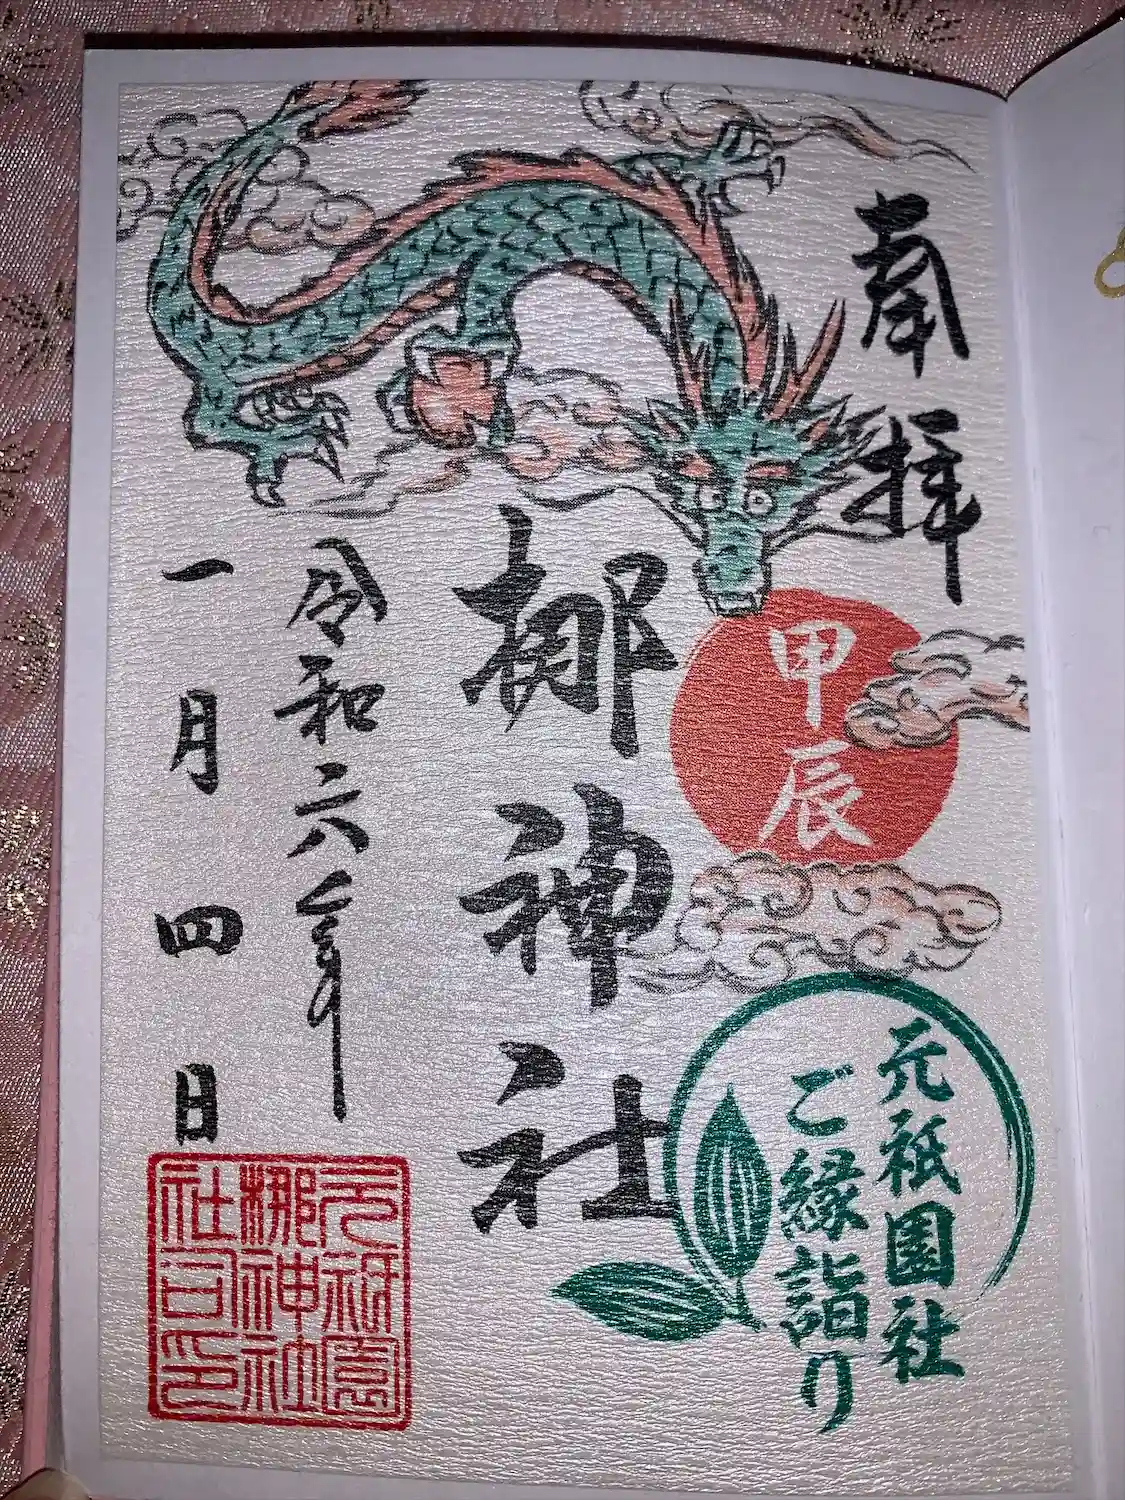 奉拝
甲辰
元祇園社
ご縁詣り
梛神社
令和六年
一月四日
元祇園
梛神社
社司印